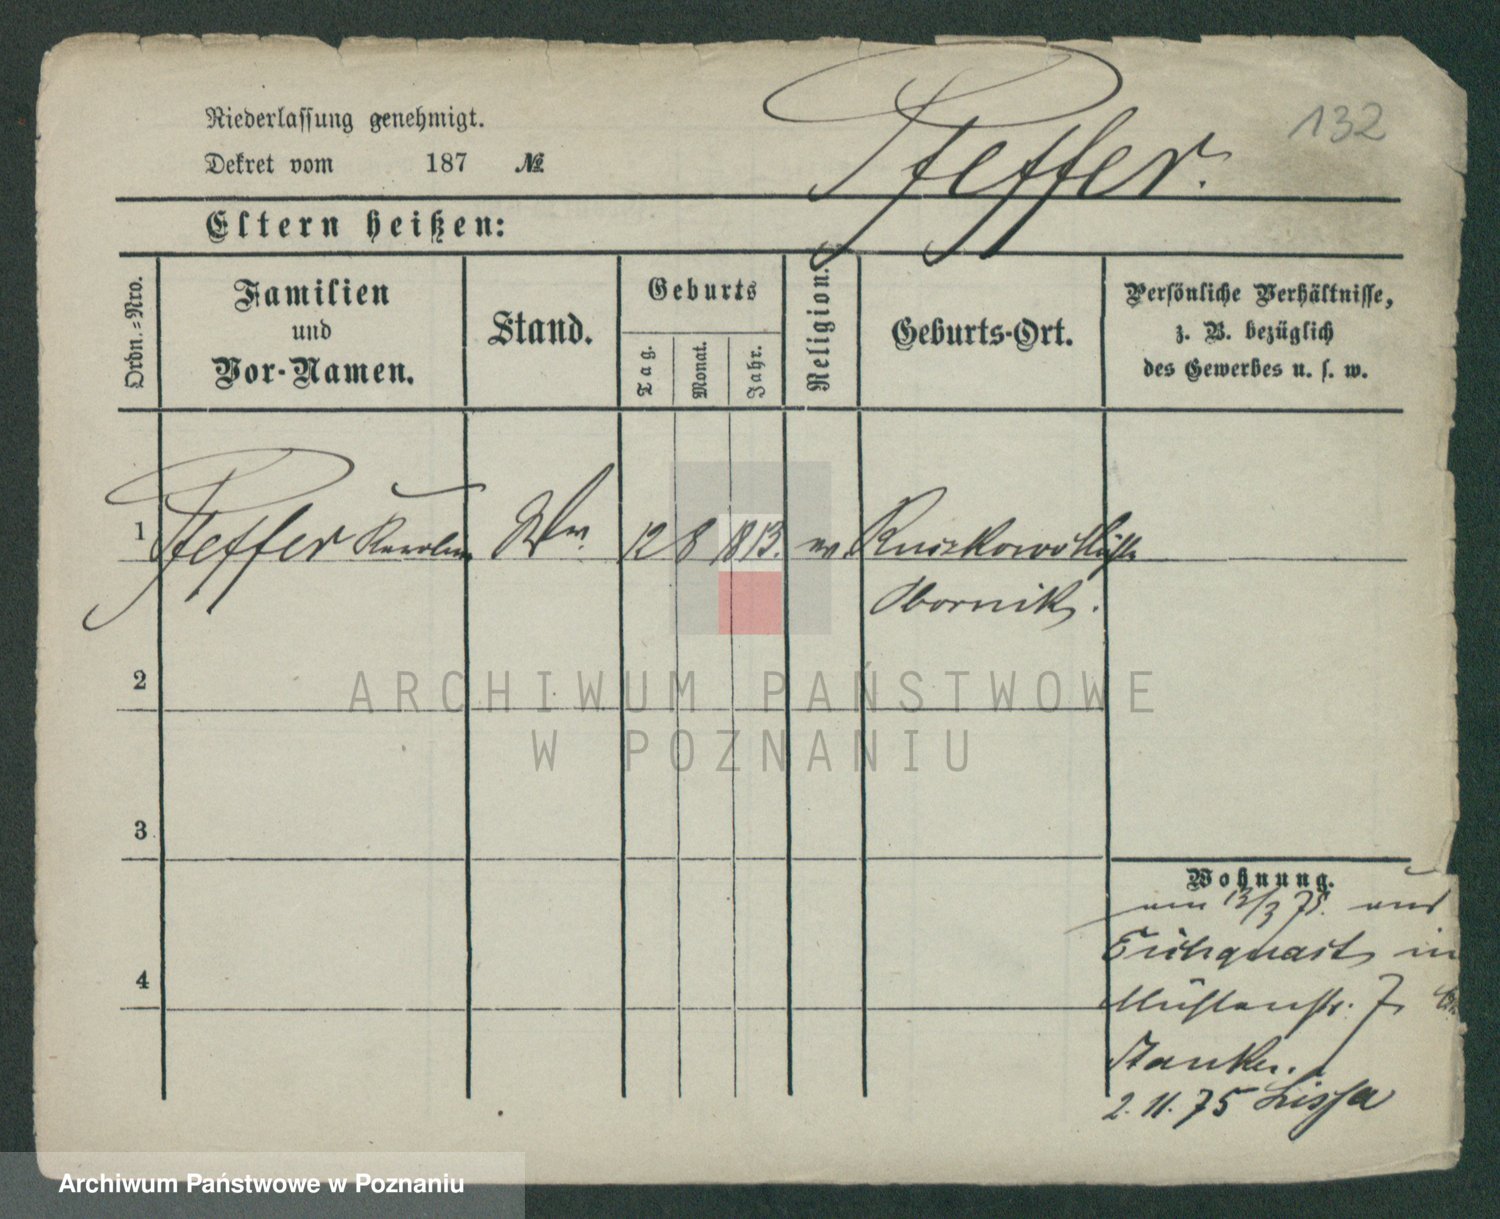 Niederlassung genehmigt.
Dekret vom 187 №
Pfeffer.
132
Eltern heißen:
Ordn.=Nro.
Familien
und
Vor-Namen.
Stand.
Geburts
Tag.
Monat.
Jahr.
Religion.
Geburts-Ort.
Persönliche Verhältnisse,
z. B. bezüglich
des Gewerbes u. s. w.
1 Pfeffer Karoline Ww. 12 8 1813. ev
Obornik.
2
ARCHIWUM PAŃSTWOWE
W POZNANIU
3
Wohnung.
am 13/3 75. aus
in
Mühlenstr. 7
4
2. 11. 75 Lissa
Archiwum Państwowe w Poznaniu